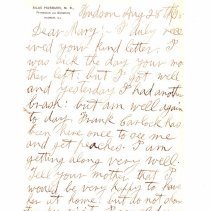 Hudson Aug 28th
Dear Mary:- I duly rec
eived your kind letter. I
was sick the day your mo
ther left but I got well
and yesterday I had another
brash: but am well again
to day. Frank Garlock has
been here once to see me
and get peaches. I am
getting along very well.
Tell your mother that I
would be very happy to have
her at home but do not